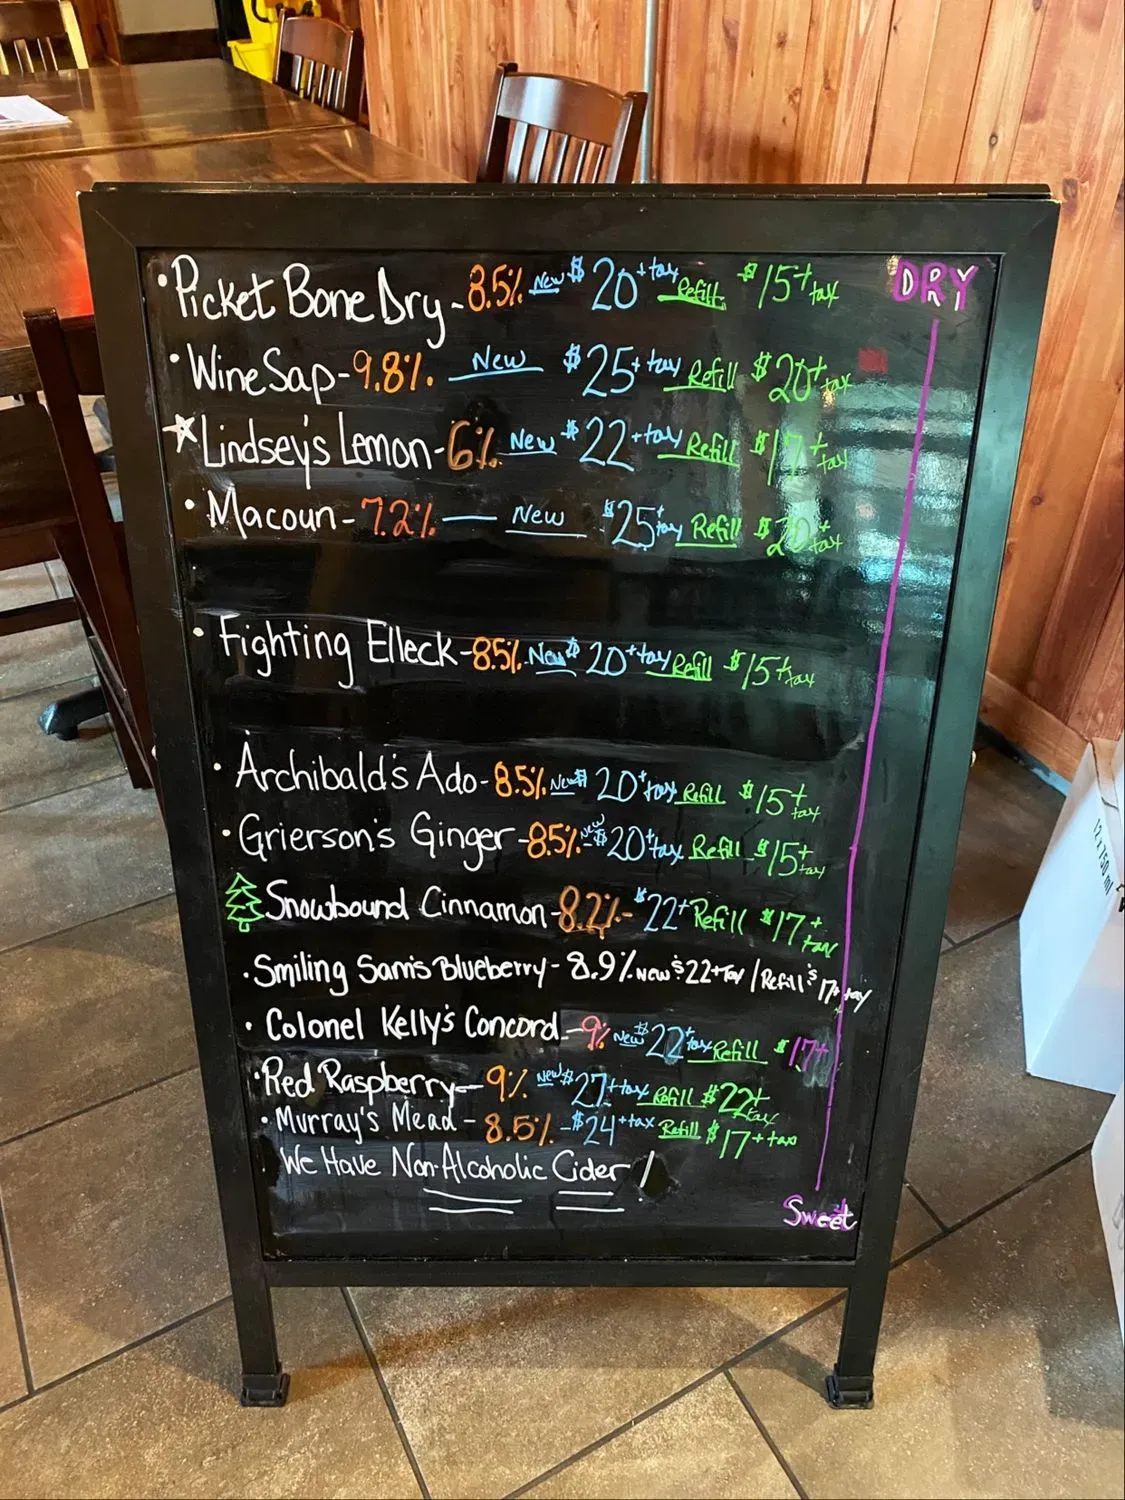 • Picket Bone Dry - 8.5% New $20 + tax Refill $15 + tax
DRY
• WineSap - 9.8% New $25 + tax Refill $20 + tax
Lindsey's Lemon - 6% New $22 + tax Refill $17 + tax
• Macoun - 7.2% — New $25 + tax Refill $20 + tax
• Fighting Elleck - 8.5% New $20 + tax Refill $15 + tax
• Archibald's Ado - 8.5% New $20 + tax Refill $15 + tax
• Grierson's Ginger - 8.5% New $20 + tax Refill $15 + tax
Snowbound Cinnamon - 8.2% - $22 + Refill $17 + tax
• Smiling Sam's Blueberry - 8.9% New $22 + tax / Refill $17 + tax
• Colonel Kelly's Concord - 9% New $22 + tax Refill $17 +
• Red Raspberry - 9% New $27 + tax Refill $22 + tax
• Murray's Mead - 8.5% - $24 + tax Refill $17 + tax
We Have Non Alcoholic Cider !
Sweet
12 x 750 ml